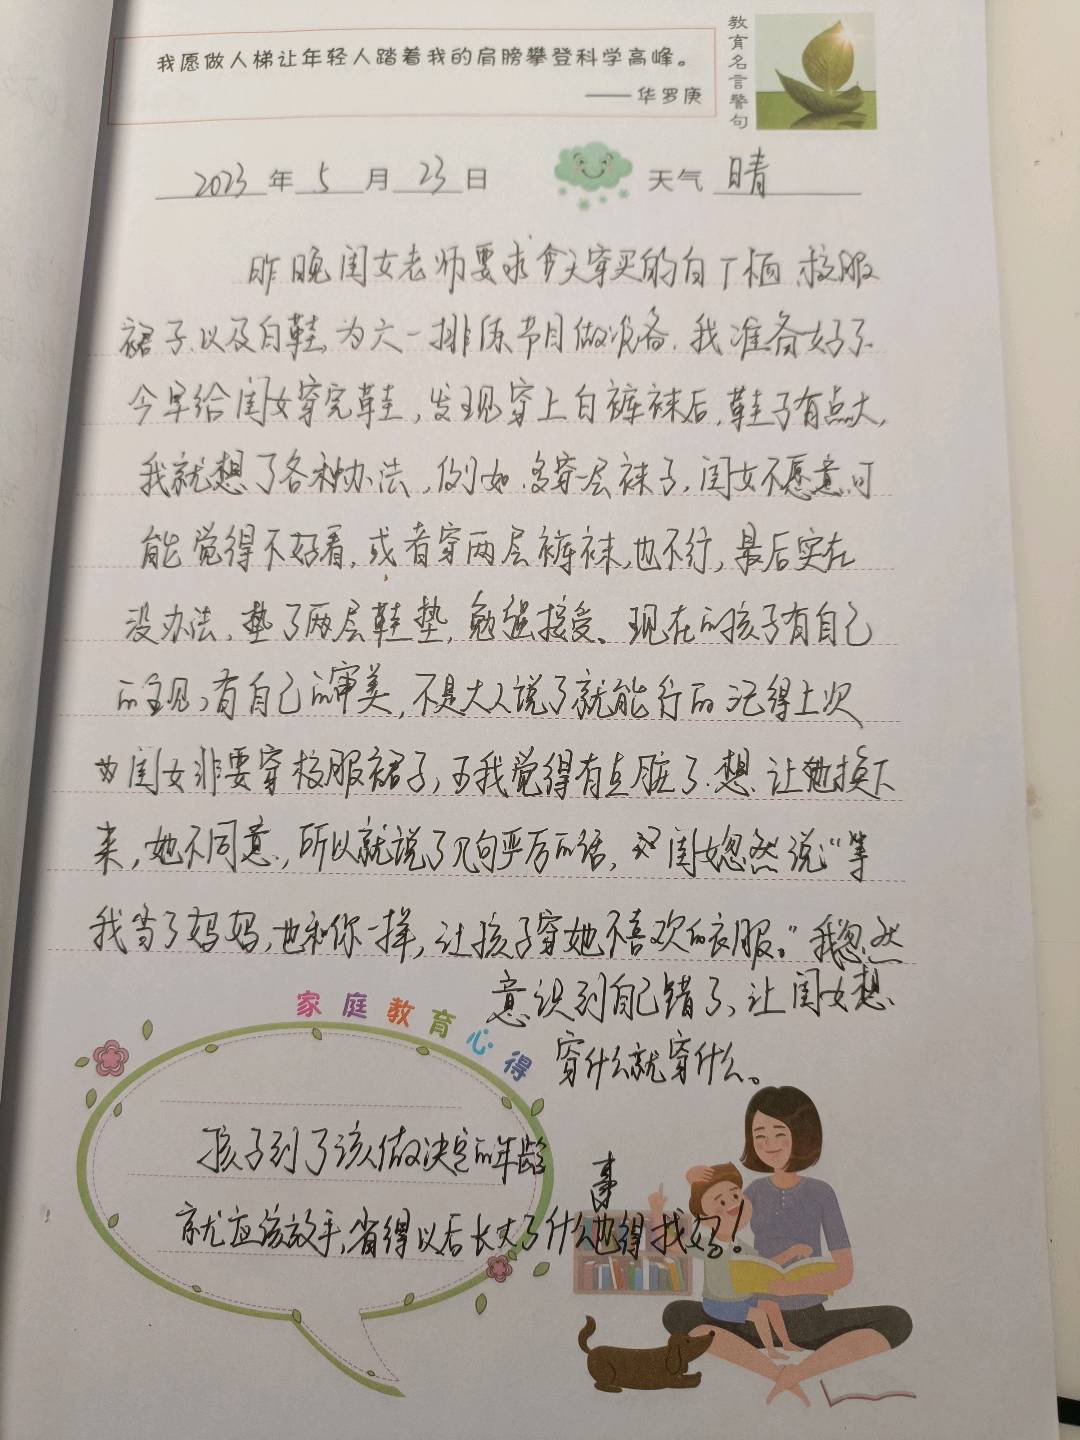 我愿做人梯让年轻人踏着我的肩膀攀登科学高峰。
——华罗庚
教育名言警句
2023年5月23日 天气 晴
昨晚闺女老师要求今天穿买的白丁恤、校服
裙子以及白鞋,为六一排练节目做准备.我准备好了.
今早给闺女穿完鞋,发现穿上白裤袜后,鞋子有点大,
我就想了各种办法,例如.多穿一层袜子,闺女不愿意,可
能觉得不好看,或者穿两层裤袜,也不行,最后实在
没办法,垫了两层鞋垫,勉强接受、现在的孩子有自己
的主见,有自己的审美,不是大人说了就能行的.记得上次
闺女非要穿校服裙子,而我觉得有点脏了.想让她换下
来,她不同意,所以就说了几句严厉的话,闺女忽然说:“等
我当了妈妈,也和你一样,让孩子穿她不喜欢的衣服。”我忽然
意识到自己错了、让闺女想
穿什么就穿什么。
家庭教育心得
孩子到了该做决定的年龄
就应该放手,省得以后长大了什么事也得找妈!